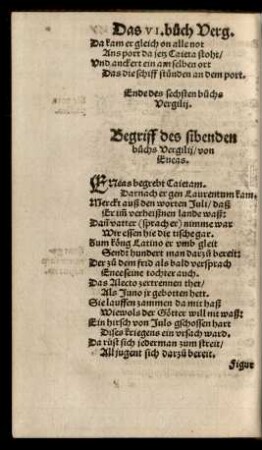 Das VI. bůch Verg.
Da kam er gleich on alle not
Ans port da jetz Caieta stoht/
Vnd anckert ein am selben ort
Das die schiff stůnden an dem port.
Ende des sechsten bůchs
Vergilij.
Begriff des sibenden
bůchs Vergilij/von
Eneas.
ENeas begrebt Caietam.
Darnach er gen Laurentum kam.
Merckt auß den worten Juli/ daß
Er im̃ verheißnen lande waß:
Dañ vatter (sprach er) nimme war
Wir essen hie die tische gar.
Zum köng Latino er vmb gleit
Sendt hundert man darzů bereit:
Der zů dem frid als bald versprach
Enee seine tochter auch.
Das Alecto zertrennen thet/
Als Juno jr gebotten hett.
Sie lauffen zammen da mit haß
Wiewols der Götter will nit waß:
Ein hirsch von Juls gschossen hart
Dises kriegens ein vrsach ward.
Da rüst sich jederman zum streit/
All jugent sich darzů bereit.
Figur